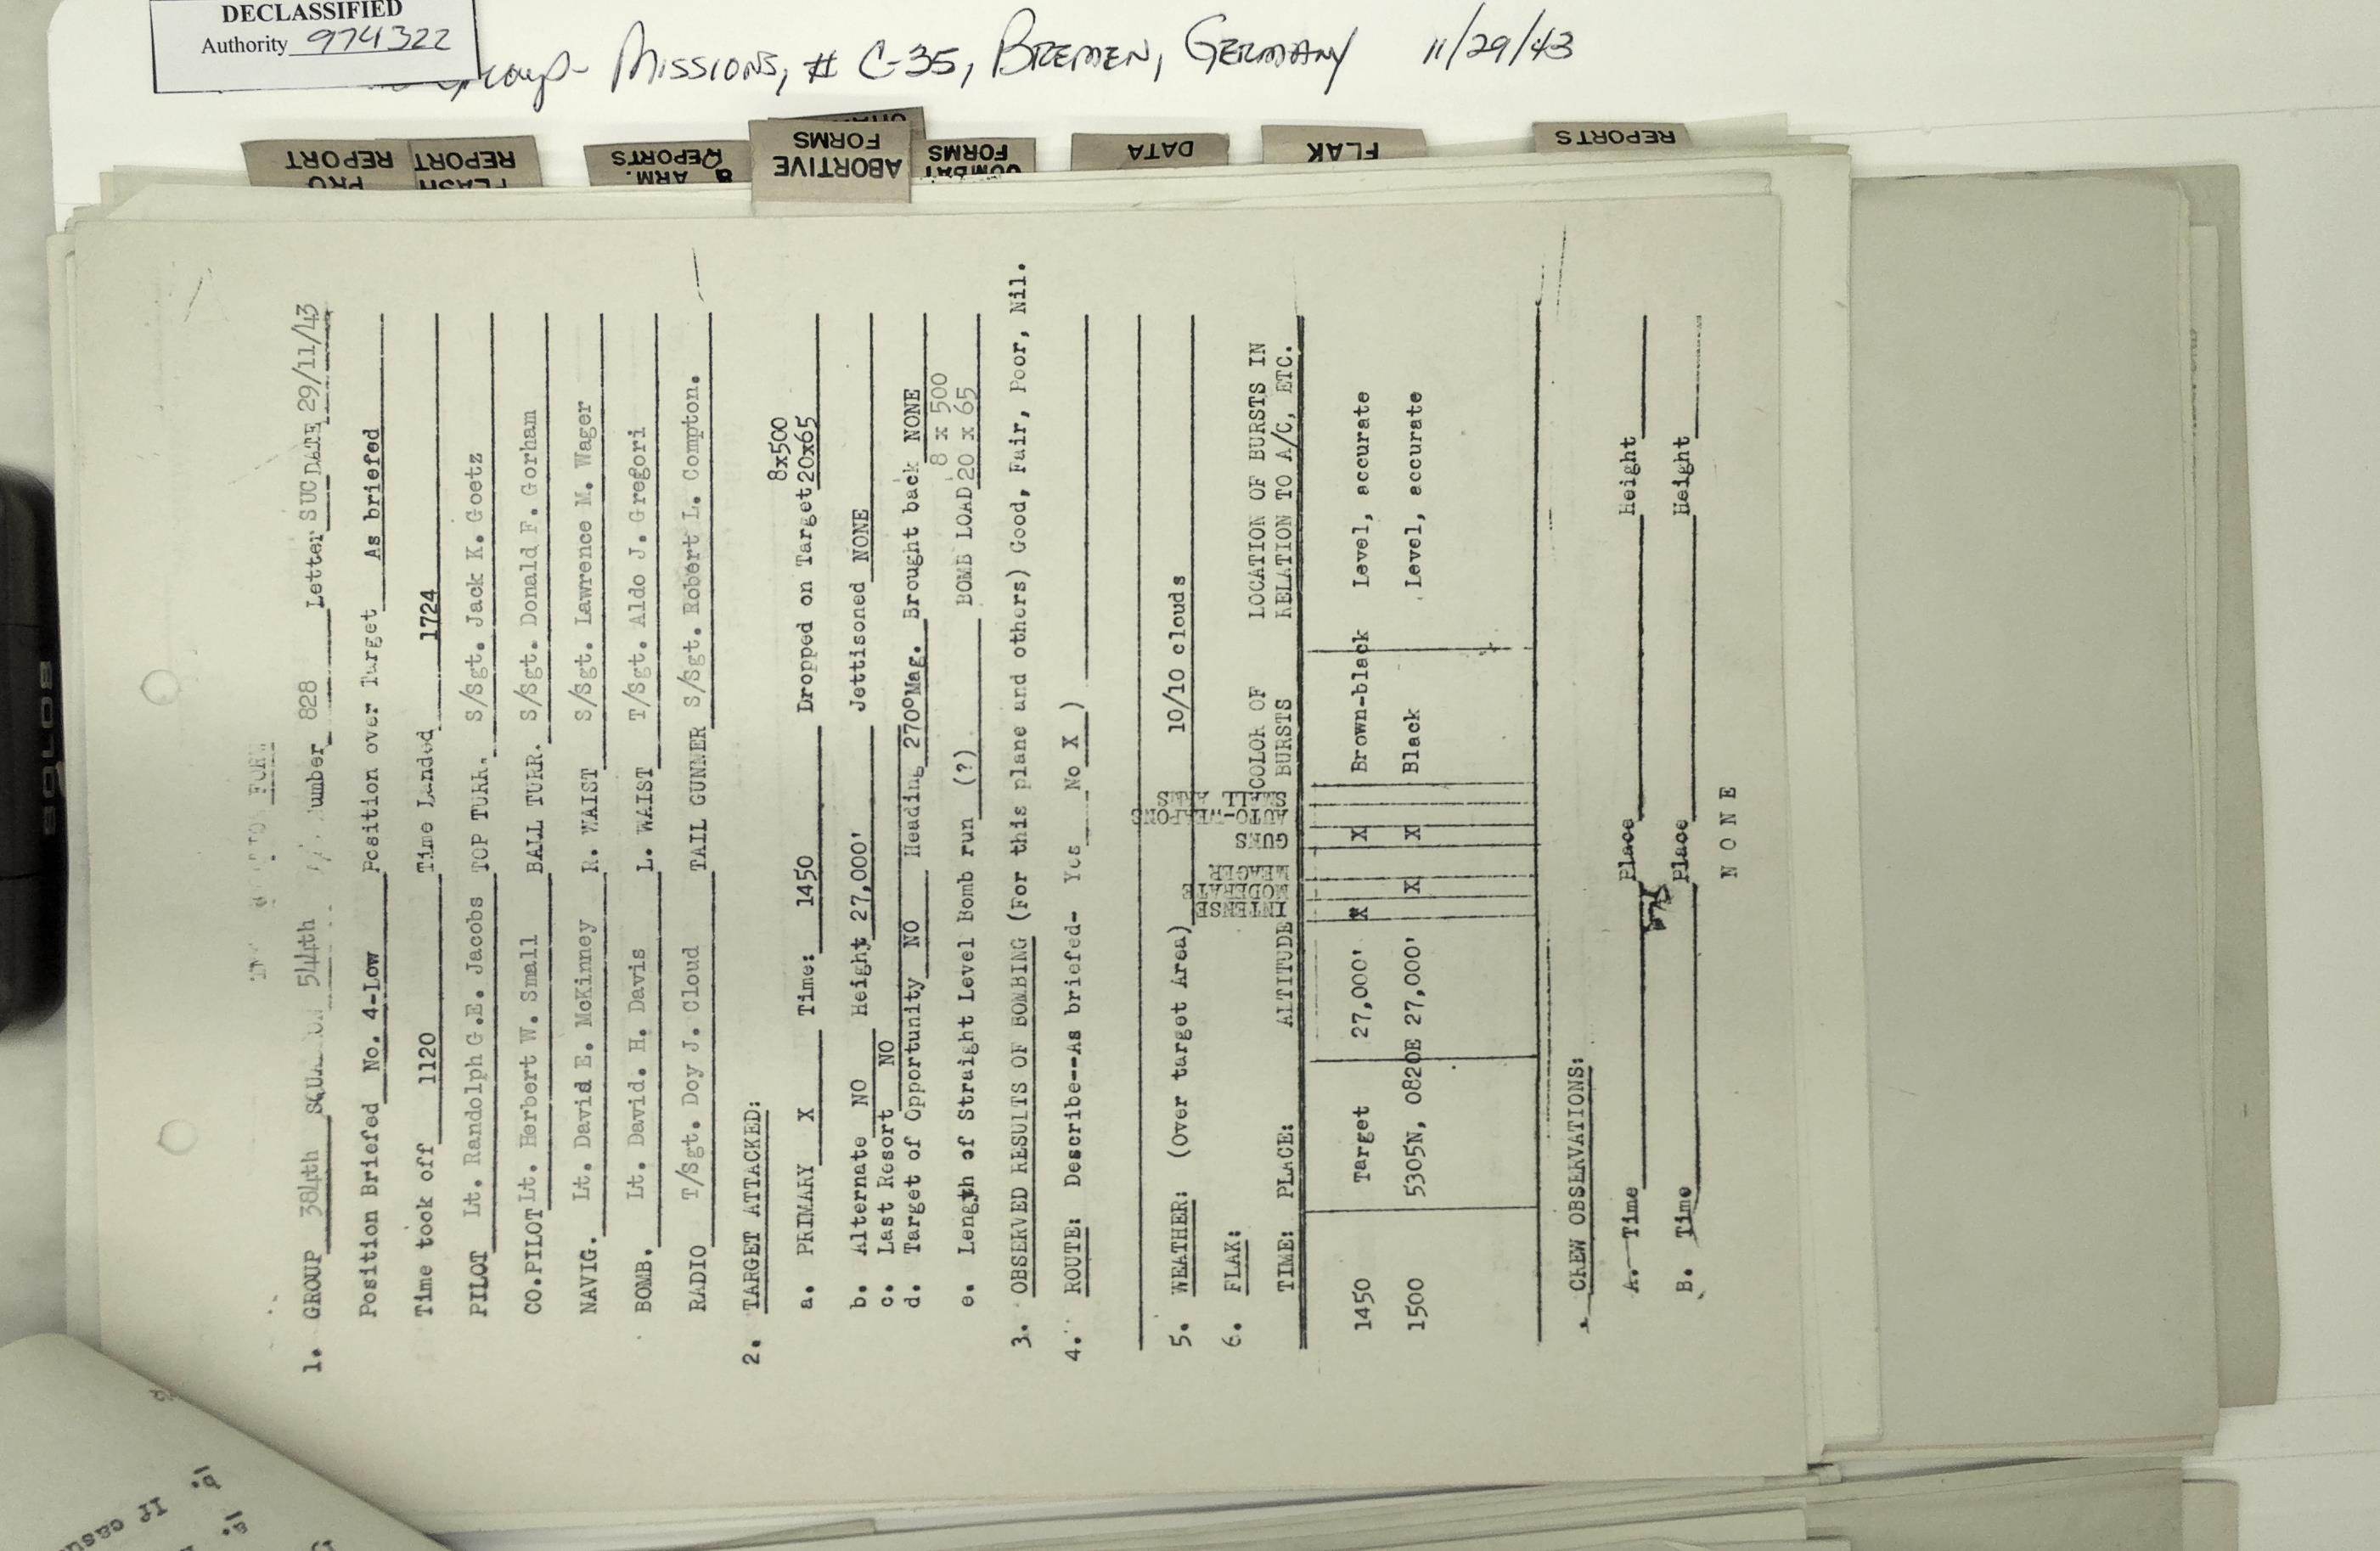 DECLASSIFIED
Authority 974322
Group- Missions, # C-35, Bremen, Germany 11/29/43
PRO
REPORT
FLASH
REPORT
ARM.
REPORTS
ABORTIVE
FORMS
COMBAT
FORMS
DATA
FLAK
REPORTS
FORM
1. GROUP 384th SQUADRON 544th umber 828 Letter SUC DATE 29/11/43
Position Briefed No. 4-Low Position over Target As briefed
Time took off 1120 Time Landed 1724
PILOT Lt. Randolph G.E. Jacobs TOP TURR. S/Sgt. Jack K. Goetz
CO.PILOT Lt. Herbert W. Small BALL TURR. S/Sgt. Donald F. Gorham
NAVIG. Lt. David E. McKinney R. WAIST S/Sgt. Lawrence M. Wager
BOMB. Lt. David. H. Davis L. WAIST T/Sgt. Aldo J. Gregori
RADIO T/Sgt. Doy J. Cloud TAIL GUNNER S/Sgt. Robert L. Compton.
2. TARGET ATTACKED:
8x500
a. PRIMARY X Time: 1450 Dropped on Target 20x65
b. Alternate NO Height 27,000' Jettisoned NONE
c. Last Resort NO
d. Target of Opportunity NO Heading 270°Mag. Brought back NONE
8 x 500
e. Length of Straight Level Bomb run (?) BOMB LOAD 20 x 65
3. OBSERVED RESULTS OF BOMBING (For this plane and others) Good, Fair, Poor, Nil.
4. ROUTE: Describe--As briefed- Yes No X )
5. WEATHER: (Over target Area) 10/10 clouds
6. FLAK:
TIME: PLACE: ALTITUDE INTENSE MODERATE MEAGER GUNS AUTO-WEAPONS SMALL ARMS COLOR OF BURSTS LOCATION OF BURSTS IN RELATION TO A/C, ETC.
1450 Target 27,000' X X Brown-black Level, accurate
1500 5305N, 0820E 27,000' X X Black Level, accurate
CREW OBSERVATIONS:
A. Time Place Height
B. Time Place Height
N O N E
If casu